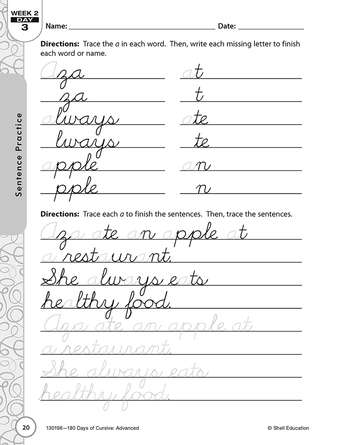 WEEK 2
DAY
3
Name: Date:
Directions: Trace the a in each word. Then, write each missing letter to finish
each word or name.
Aza at
za t
always ate
lways te
apple an
pple n
Sentence Practice
Directions: Trace each a to finish the sentences. Then, trace the sentences.
Aza ate an apple at
a restaurant.
She always eats
healthy food.
Aza ate an apple at
a restaurant.
She always eats
healthy food.
20 130196—180 Days of Cursive: Advanced © Shell Education